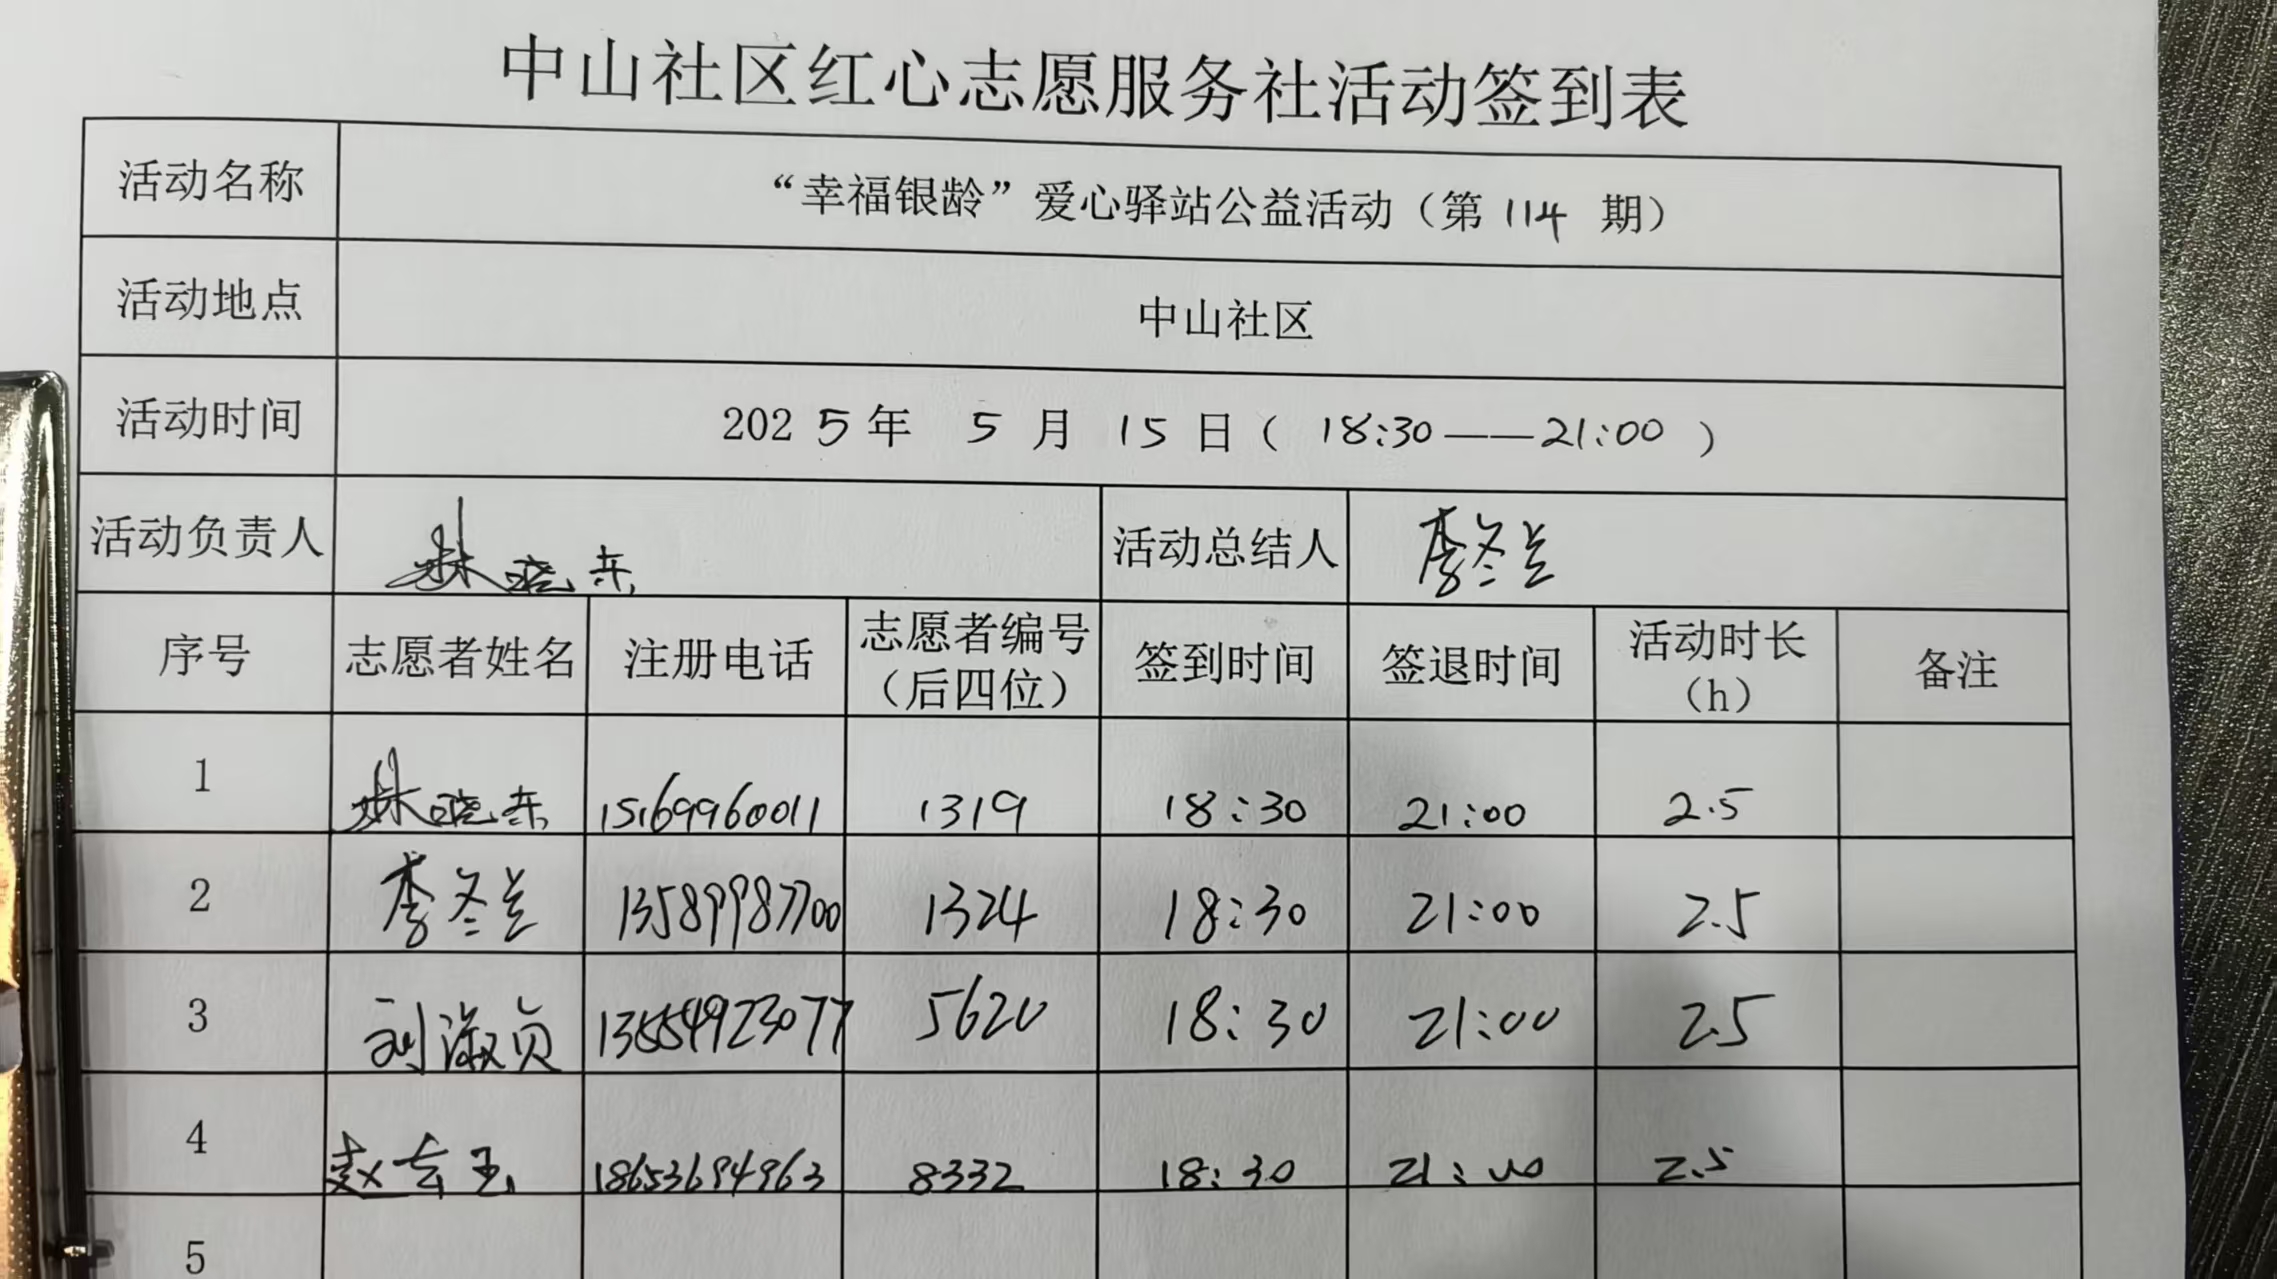 中山社区红心志愿服务社活动签到表
活动名称 “幸福银龄”爱心驿站公益活动（第 114 期）
活动地点 中山社区
活动时间 2025年 5 月 15 日（ 18:30——21:00 ）
活动负责人 林晓东 活动总结人 李冬兰
序号 志愿者姓名 注册电话 志愿者编号（后四位） 签到时间 签退时间 活动时长（h） 备注
1 林晓东 15169960011 1319 18:30 21:00 2.5
2 李冬兰 13589987700 1324 18:30 21:00 2.5
3 刘淑贞 5620 18:30 21:00 2.5
4 赵玉 18653694963 8332 18:30 21:00 2.5
5